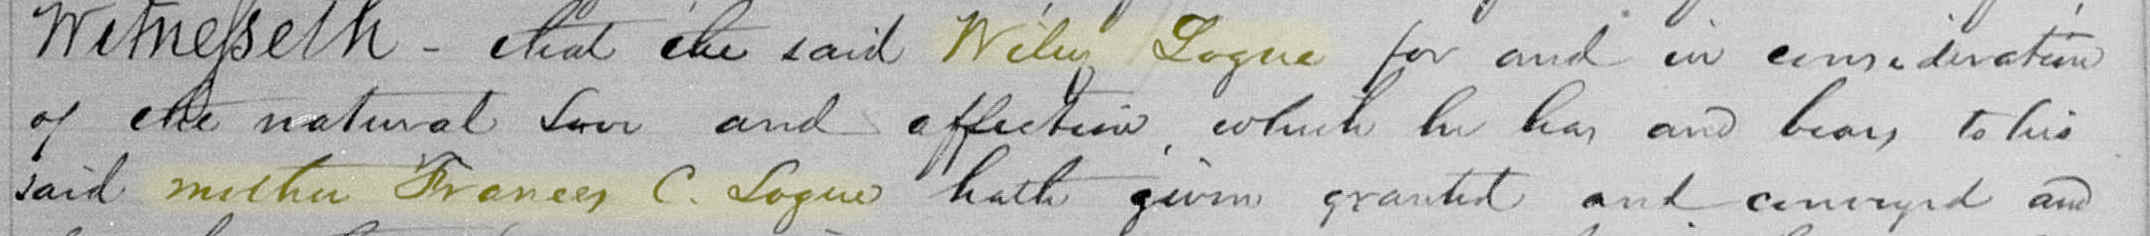 Witnesseth - that the said Wiley Logue for and in consideration
of the natural love and affection, which he has and bears to his
said mother Frances C. Logue hath given granted and conveyed and